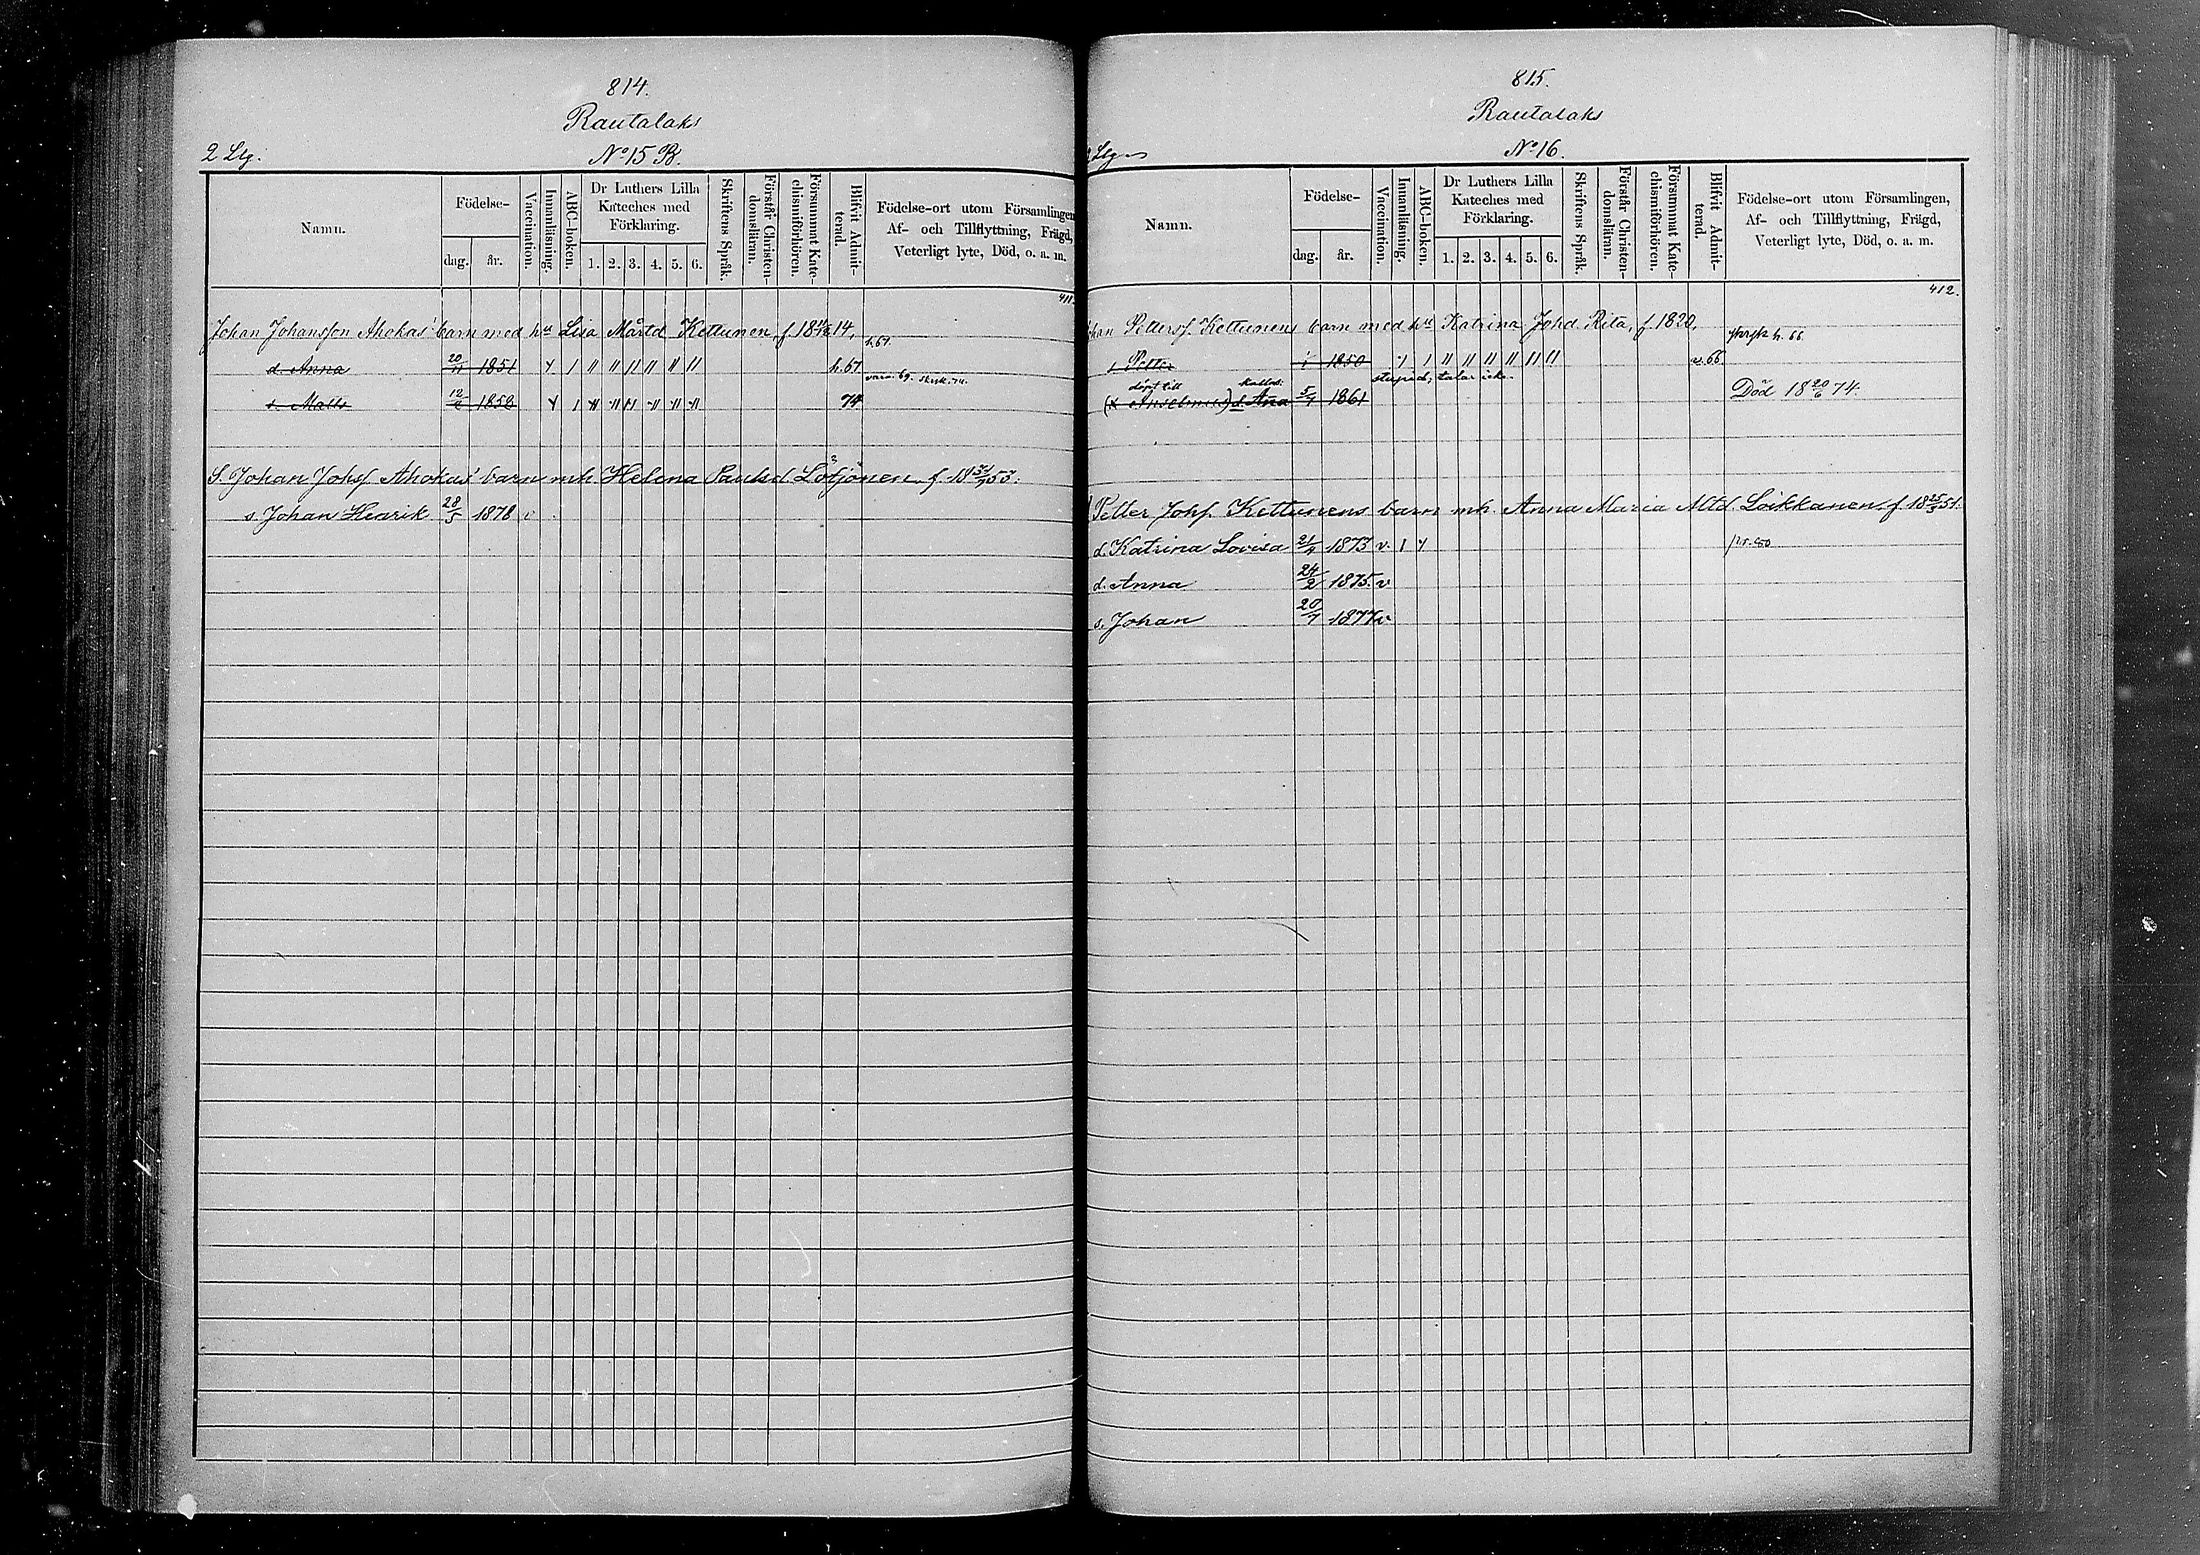 814.
Rautalaks
2 Llg. No 15 B.
Namn. Födelse- dag. år. Vaccination. Innanläsning. ABC-boken. Dr Luthers Lilla Kateches med Förklaring. 1. 2. 3. 4. 5. 6. Skriftens Språk. Förstår Christendomsläran. Försummat Katechismiförhören. Blifvit Admitterad. Födelse-ort utom Församlingen, Af- och Tillflyttning, Frägd, Veterligt lyte, Död, o. a. m.
411.
Johan Johansson Ahokas' barn med hu Lisa Mårtd Kettunen, f. 14.
h. 67.
d. Anna 20/11 1851 h. 67
s. Matts 1858 74
S. Johan Johs Ahokas' barn mh Helena Paulsd Lötjönen f. 53.
s. Johan Henrik 28/5 1878 v
815.
Rautalaks
Llg No 16.
Namn. Födelse- dag. år. Vaccination. Innanläsning. ABC-boken. Dr Luthers Lilla Kateches med Förklaring. 1. 2. 3. 4. 5. 6. Skriftens Språk. Förstår Christendomsläran. Försummat Katechismiförhören. Blifvit Admitterad. Födelse-ort utom Församlingen, Af- och Tillflyttning, Frägd, Veterligt lyte, Död, o. a. m.
412.
Petterss. Kettunens barn med hu Katrina Johd Rita, f. 1820. h. 66.
s Petter 1850 v. 66
stupid, talar icke.
döpt till kallas
Anselmus) d. Ana 5/7 1861 Död 18 20/6 74.
Petter Johs. Kettunens barn mh. Anna Maria Mtd. Loikkanen f. 18 25/3 51.
d. Katrina Lovisa 21/7 1873 v.
d. Anna 24/2 1875. v
s. Johan 20/7 1877 v